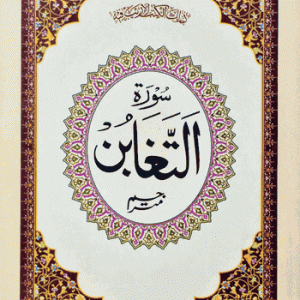 سُوۡرَةُ
التَّغَابُن
مترجم